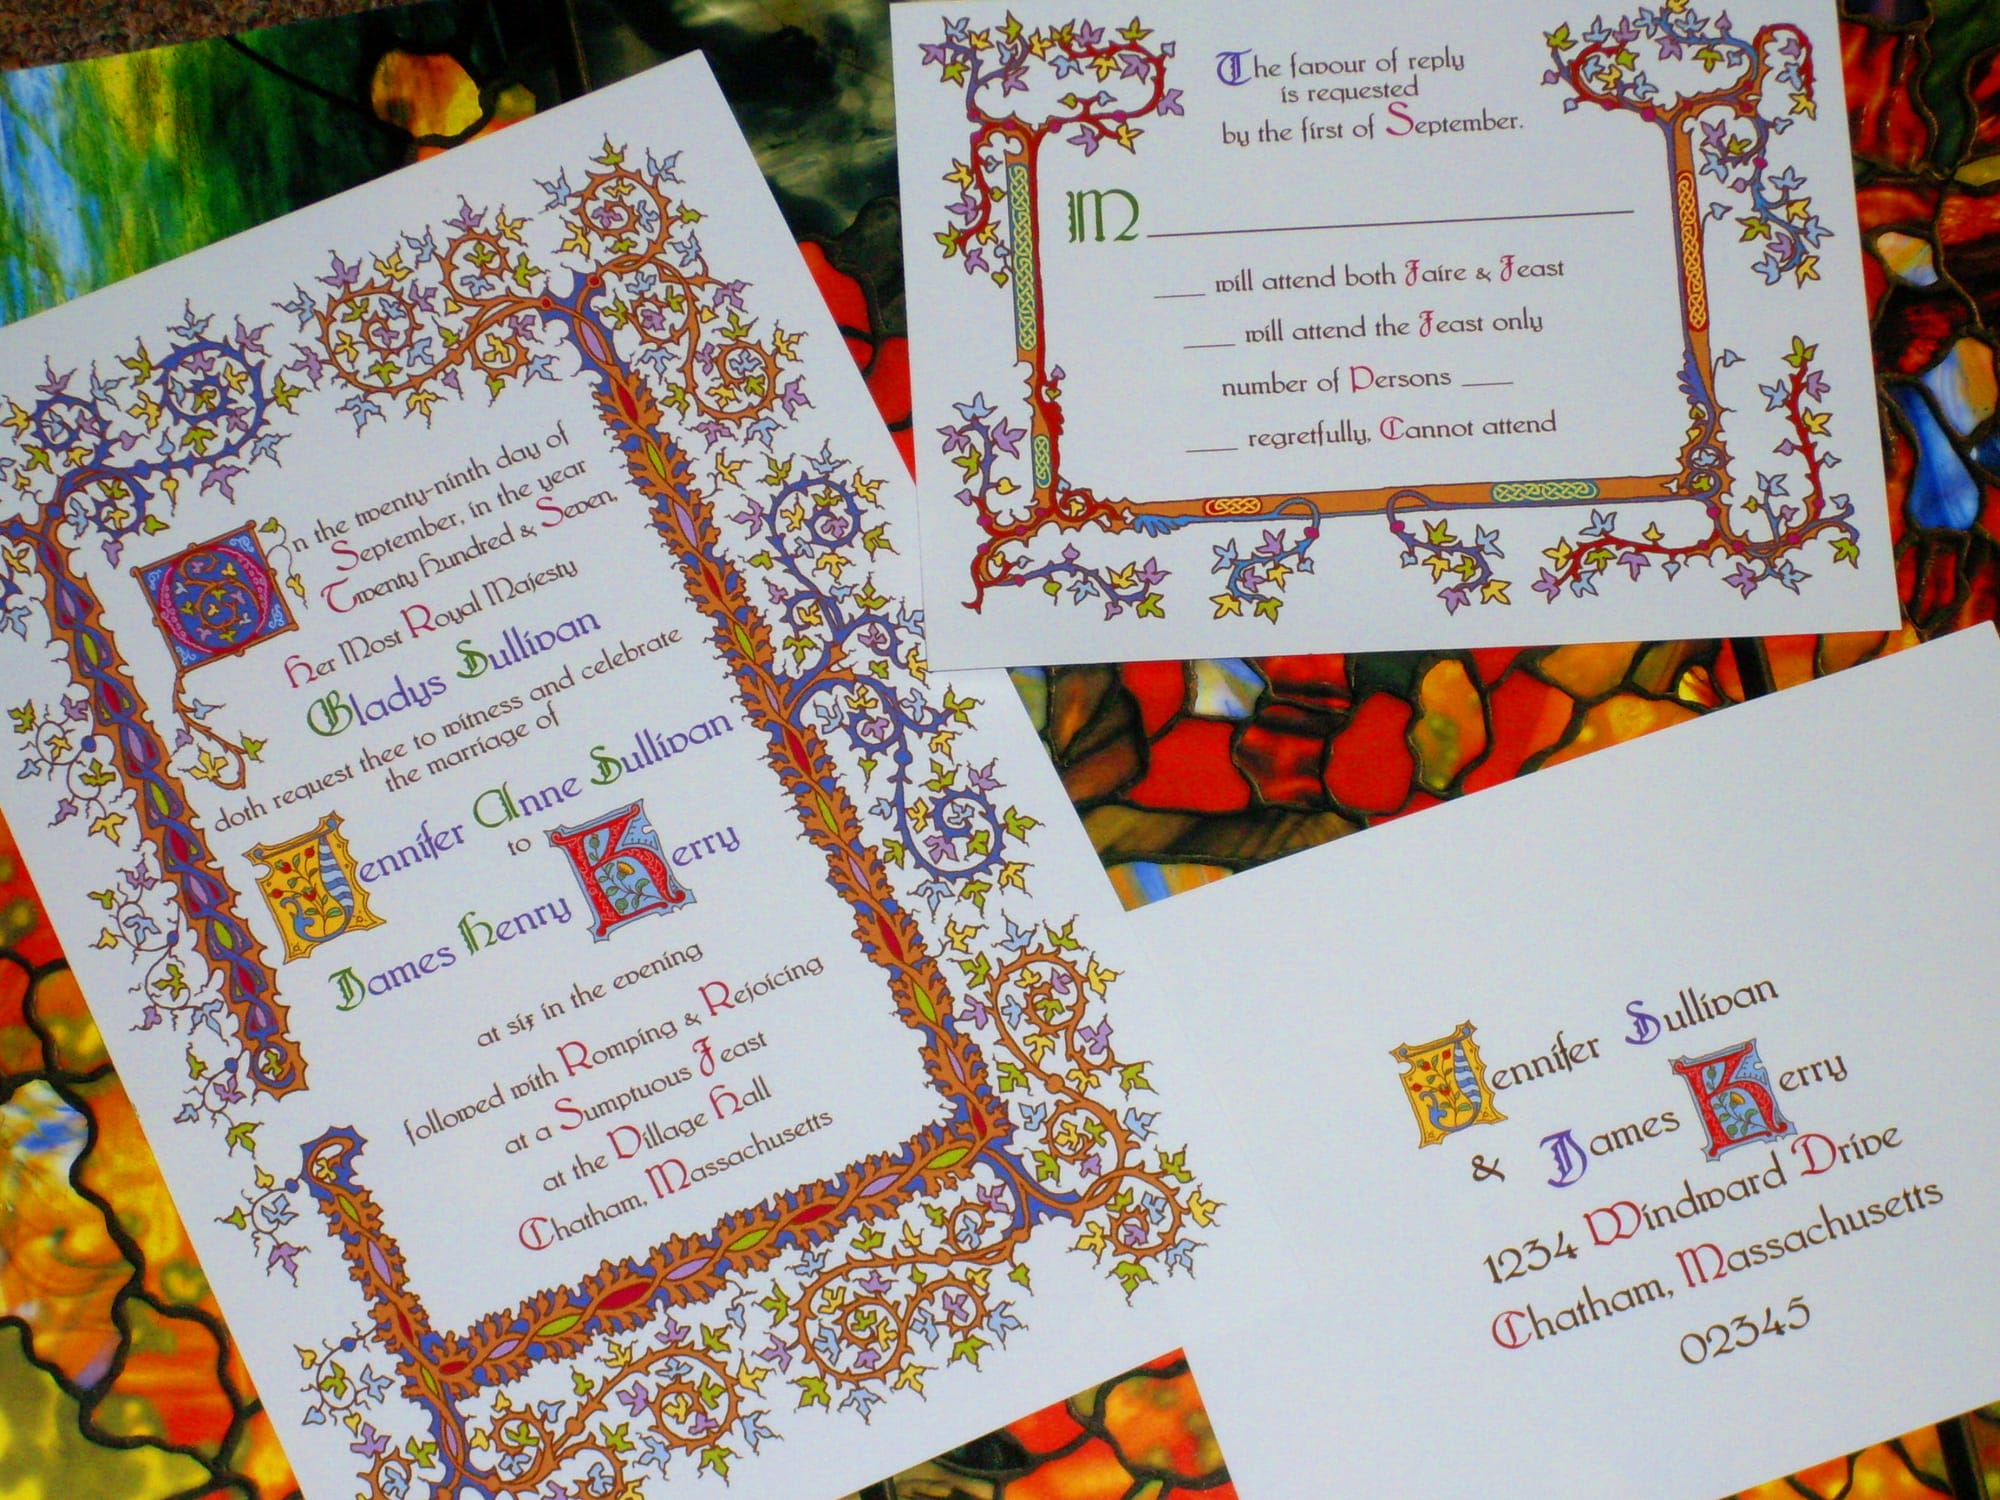 On the twenty-ninth day of
September, in the year
Twenty Hundred & Seven,
Her Most Royal Majesty
Gladys Sullivan
doth request thee to witness and celebrate
the marriage of
Jennifer Anne Sullivan
to
James Henry Kerry
at six in the evening
followed with Romping & Rejoicing
at a Sumptuous Feast
at the Village Hall
Chatham, Massachusetts
The favour of reply
is requested
by the first of September.
M
will attend both Faire & Feast
will attend the Feast only
number of Persons
regretfully, Cannot attend
Jennifer Sullivan
& James Kerry
1234 Windward Drive
Chatham, Massachusetts
02345